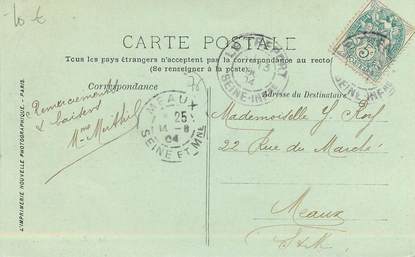 10 €
CARTE POSTALE
Tous les pays étrangers n'acceptent pas la correspondance au recto
(Se renseigner à la poste.)
Correspondance
Adresse du Destinataire
Remerciements
& baisers
Mme
MEAUX
25
14 -8
04
SEINE ET MNE
LE TREPORT
SEINE-INFRE
5
Mademoiselle Y.
22 Rue du Marché
Meaux
S & M
L'IMPRIMERIE NOUVELLE PHOTOGRAPHIQUE - PARIS.